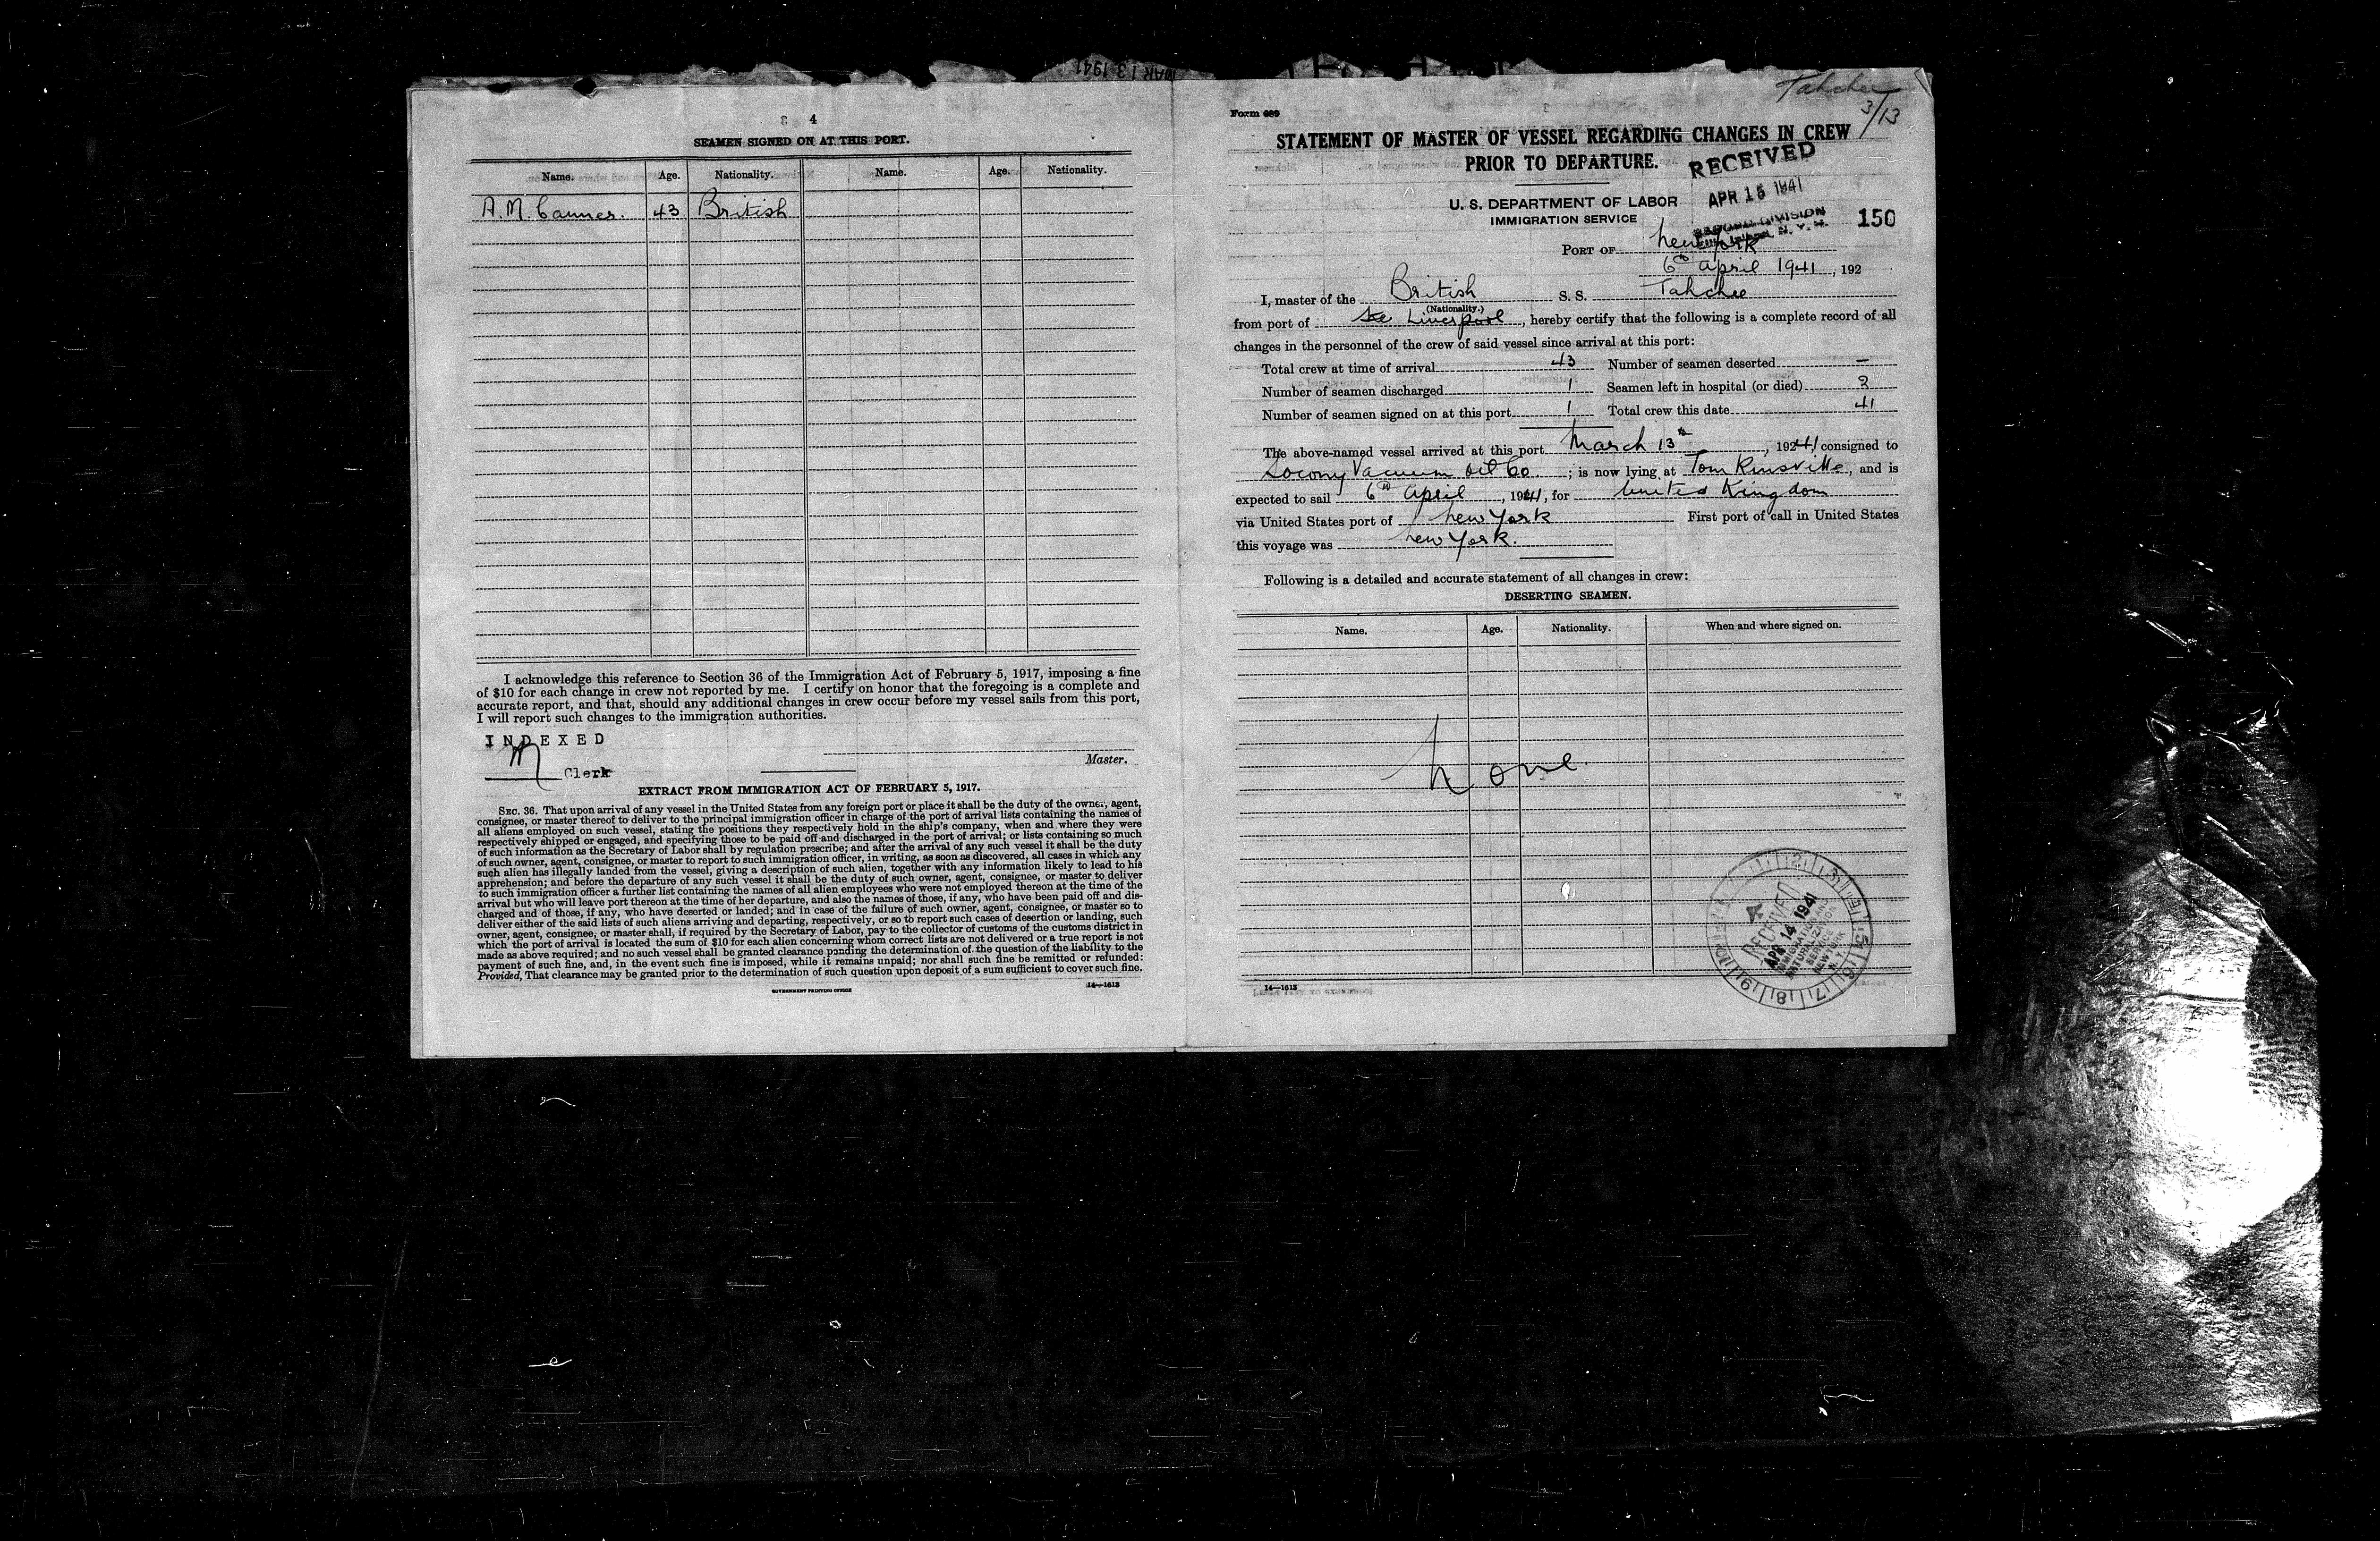 MAR 13 1941
4
SEAMEN SIGNED ON AT THIS PORT.
Name. Age. Nationality. Name. Age. Nationality.
A. M. 43 British
I acknowledge this reference to Section 36 of the Immigration Act of February 5, 1917, imposing a fine
of $10 for each change in crew not reported by me. I certify on honor that the foregoing is a complete and
accurate report, and that, should any additional changes in crew occur before my vessel sails from this port,
I will report such changes to the immigration authorities.
INDEXED
M
Clerk
Master.
EXTRACT FROM IMMIGRATION ACT OF FEBRUARY 5, 1917.
SEC. 36. That upon arrival of any vessel in the United States from any foreign port or place it shall be the duty of the owner, agent,
consignee, or master thereof to deliver to the principal immigration officer in charge of the port of arrival lists containing the names of
all aliens employed on such vessel, stating the positions they respectively hold in the ship's company, when and where they were
respectively shipped or engaged, and specifying those to be paid off and discharged in the port of arrival; or lists containing so much
of such information as the Secretary of Labor shall by regulation prescribe; and after the arrival of any such vessel it shall be the duty
of such owner, agent, consignee, or master to report to such immigration officer, in writing, as soon as discovered, all cases in which any
such alien has illegally landed from the vessel, giving a description of such alien, together with any information likely to lead to his
apprehension; and before the departure of any such vessel it shall be the duty of such owner, agent, consignee, or master to deliver
to such immigration officer a further list containing the names of all alien employees who were not employed thereon at the time of the
arrival but who will leave port thereon at the time of her departure, and also the names of those, if any, who have been paid off and dis-
charged and of those, if any, who have deserted or landed; and in case of the failure of such owner, agent, consignee, or master so to
deliver either of the said lists of such aliens arriving and departing, respectively, or so to report such cases of desertion or landing, such
owner, agent, consignee, or master shall, if required by the Secretary of Labor, pay to the collector of customs of the customs district in
which the port of arrival is located the sum of $10 for each alien concerning whom correct lists are not delivered or a true report is not
made as above required; and no such vessel shall be granted clearance pending the determination of the question of the liability to the
payment of such fine, and, in the event such fine is imposed, while it remains unpaid; nor shall such fine be remitted or refunded:
Provided, That clearance may be granted prior to the determination of such question upon deposit of a sum sufficient to cover such fine.
GOVERNMENT PRINTING OFFICE
14—1613
Tahchee
3/13
Form 689
STATEMENT OF MASTER OF VESSEL REGARDING CHANGES IN CREW
PRIOR TO DEPARTURE.
RECEIVED
APR 15 1941
U. S. DEPARTMENT OF LABOR
IMMIGRATION SERVICE
150
PORT OF New York
6th April 1941, 192
I, master of the British S. S. Tahchee
(Nationality.)
from port of Liverpool, hereby certify that the following is a complete record of all
changes in the personnel of the crew of said vessel since arrival at this port:
Total crew at time of arrival 43 Number of seamen deserted –
Number of seamen discharged 1 Seamen left in hospital (or died) 2
Number of seamen signed on at this port 1 Total crew this date 41
The above-named vessel arrived at this port March 13th, 1941 consigned to
Socony Vacuum Oil Co; is now lying at Tom Kinsville, and is
expected to sail 6th April, 1941, for United Kingdom
via United States port of New York First port of call in United States
this voyage was New York.
Following is a detailed and accurate statement of all changes in crew:
DESERTING SEAMEN.
Name. Age. Nationality. When and where signed on.
None
RECEIVED
APR 14 1941
14—1613